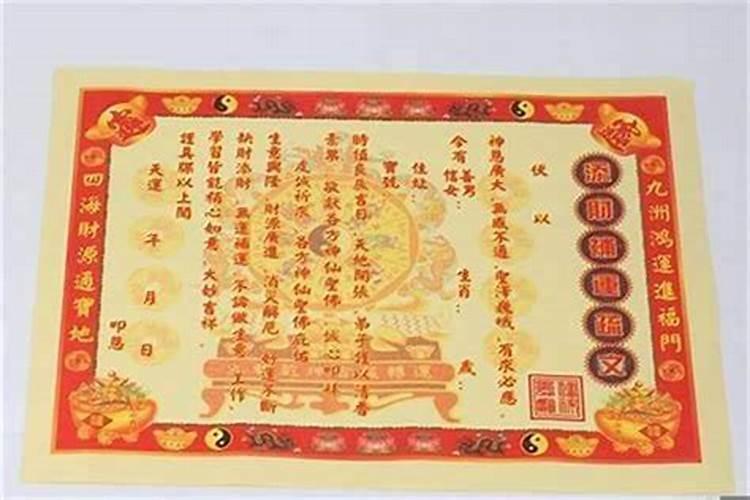 九洲鴻運進福門
添財補運疏文
伏以
神恩廣大 無感不通 聖澤巍峨 有求必應
今有善男 生肖： 歲：
信女：
住址：
寶號
時值良辰吉日 天地開張 弟子謹以清香
素果 敬獻各方神仙聖佛 誠心叩拜
虔誠祈求 各方神仙聖佛庇佑
生意興隆 財源廣進 消災解厄 好運不斷
缺財添財 無運補運 不論做生意 工作、
學習皆能稱心如意 大妙吉祥
謹具疏以上聞
天運 年 月 日
叩恩
四海財源通寶地